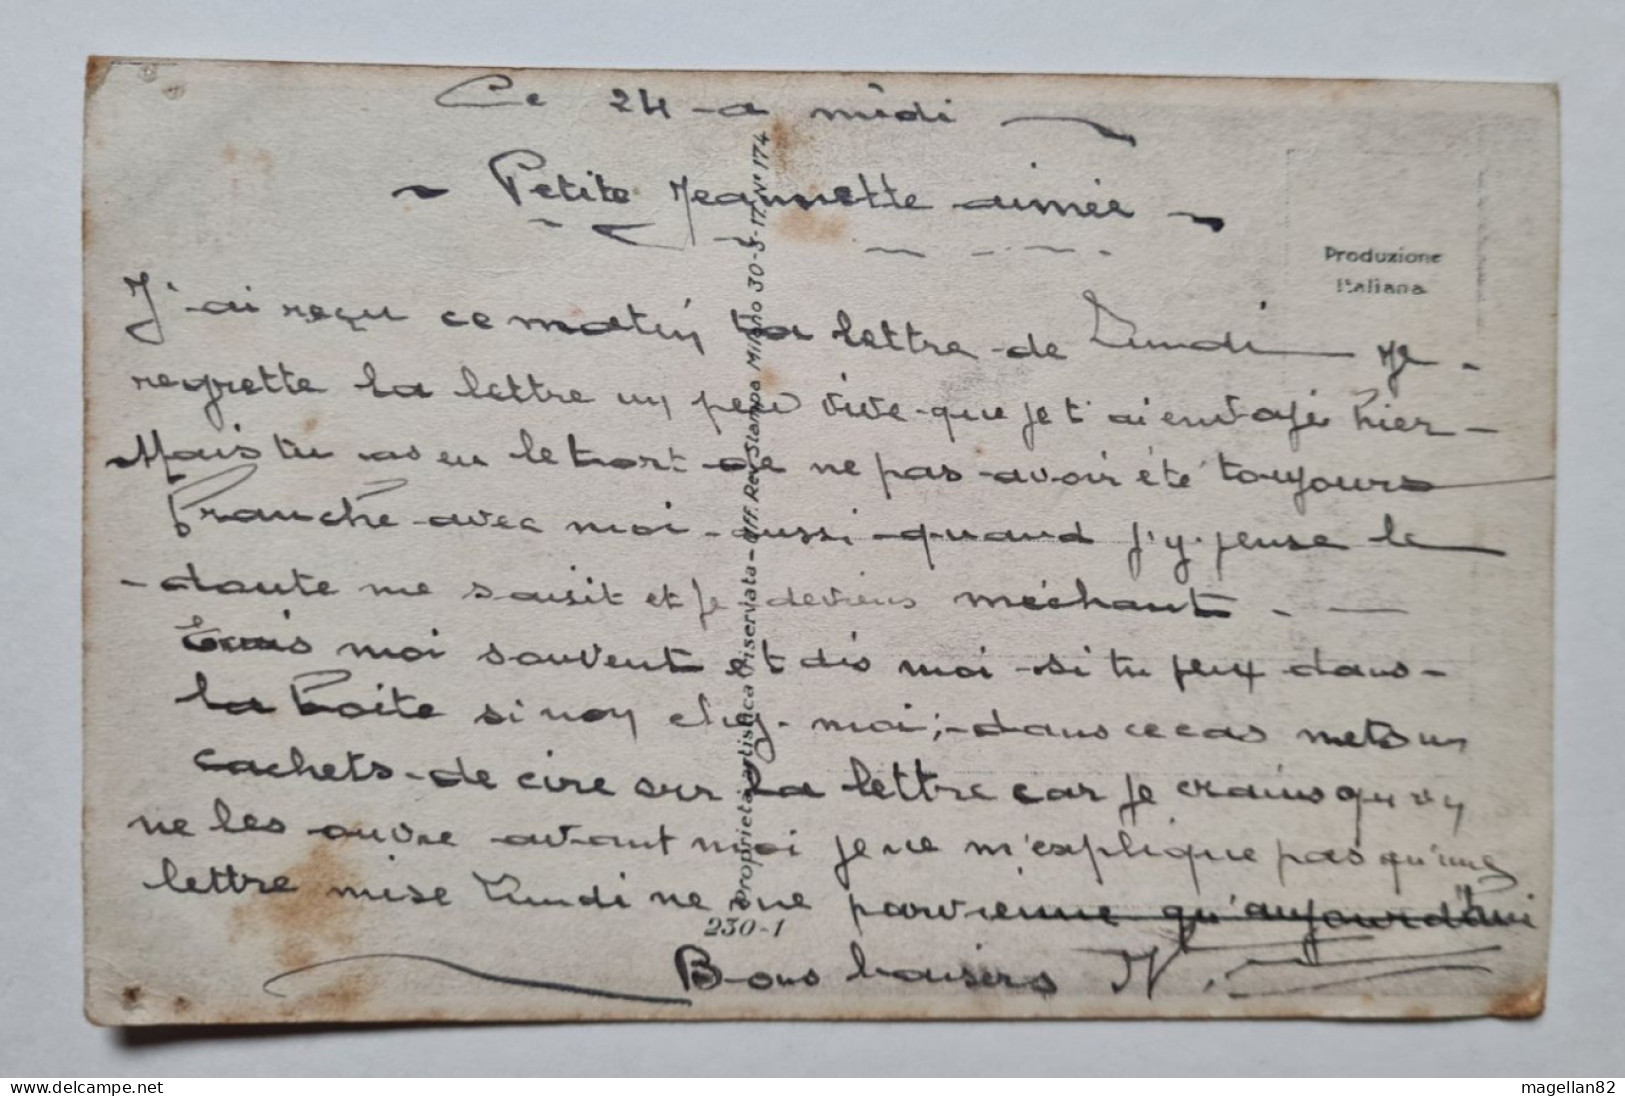 Ce 24 - a midi
- Petite Jeannette aimée -
J'ai reçu ce matin ta lettre de Lundi Je
regrette la lettre un peu vive que je t'ai envoyé hier -
Mais tu as eu le tort de ne pas avoir été toujours
Franche avec moi - aussi quand j'y pense le
- doute me saisit et je deviens méchant -
moi souvent et dis moi si tu peux dans -
la boite si non chez moi; dans ce cas mets un
cachets de cire sur la lettre car je crains qu'on
ne les ouvre avant moi je ne m'explique pas qu'une
lettre mise Lundi ne me parvienne qu'aujourd'hui
Bons baisers
Produzione
Italiana
Proprietà artistica riservata - Uff. Rev. Stampa Milano 30-5-17 N° 174
230-1
www.delcampe.net
magellan82